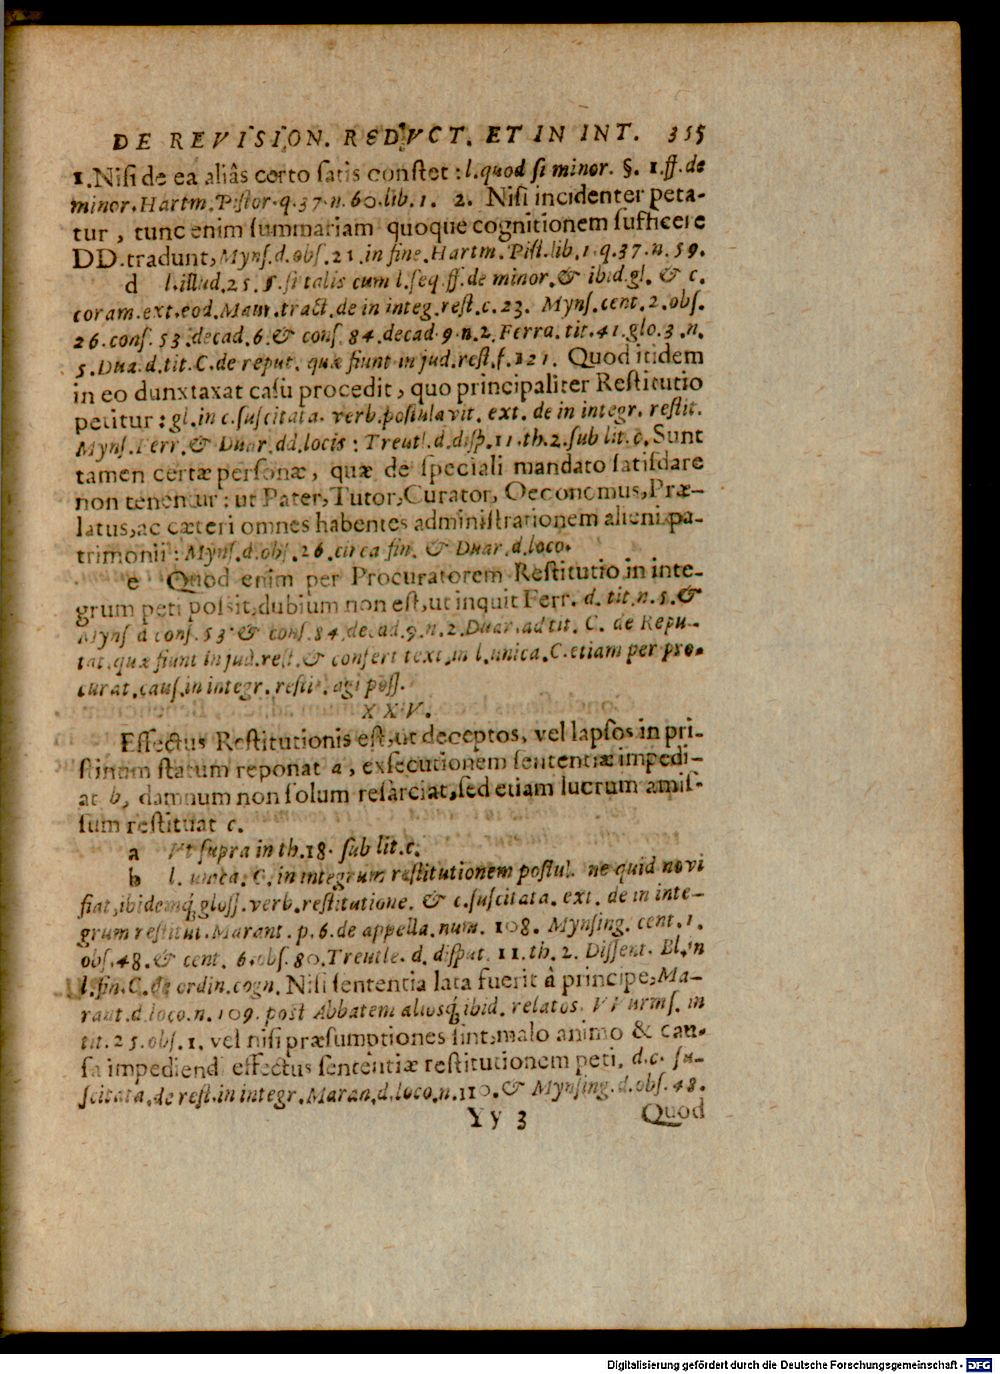 DE REVISION. REDVCT. ET IN INT. 355
1. Nisi de ea aliâs certo satis constet: l. quod si minor. §. 1. ff. de
minor. Hartm. Pistor. q. 37. n. 60. lib. 1. 2. Nisi incidenter peta-
tur, tunc enim summariam quoque cognitionem sufficere
DD. tradunt, Mynſ. d. obſ. 21. in fine. Hartm. Piſt. lib. 1. q. 37. n. 59.
d l. illud. 25. §. si talis cum l. ſeq. ff. de minor. & ib. d. gl. & c.
coram. ext. eod. Maur. tract. de in integ. reſt. c. 23. Mynſ. cent. 2. obſ.
26. conſ. 53. decad. 6. & conſ. 84. decad. 9. n. 2. Ferra. tit. 41. glo. 3. n.
5. Dua. d. tit. C. de reput. quæ fiunt in jud. reſt. f. 121. Quod itidem
in eo dunxtaxat caſu procedit, quo principaliter Reſtitutio
petitur: gl. in c. ſuſcitata. verb. poſtulavit. ext. de in integr. reſtit.
Mynſ. Ferr. & Duar. dd. locis: Treutl. d. diſp. 11. th. 2. ſub lit. c. Sunt
tamen certæ perſonæ, quæ de ſpeciali mandato ſatiſdare
non tenentur: ut Pater, Tutor, Curator, Oeconomus, Præ-
latus, ac cæteri omnes habentes adminiſtrationem alieni pa-
trimonii: Mynſ. d. obſ. 26. circa fin. & Duar. d. loco.
e Quod enim per Procuratorem Reſtitutio in inte-
grum peti poſſit, dubium non eſt, ut inquit Ferr. d. tit. n. 5. &
Mynſ d conſ. 53. & conſ. 84. decad. 9. n. 2. Duar. ad tit. C. de Repu-
tat. quæ fiunt in jud. reſt. & confert text. in l. unica. C. etiam per pro-
curat. cauſ. in integr. reſtit. agi poſſ.
XXV.
Effectus Reſtitutionis eſt, ut deceptos, vel lapſos in pri-
ſtinum ſtatum reponat a, exſecutionem ſententiæ impedi-
at b, damnum non ſolum reſarciat, ſed etiam lucrum amiſ-
ſum reſtituat c.
a Vt ſupra in th. 18. ſub lit. c.
b l. unica. C. in integrum reſtitutionem poſtul. ne quid novi
fiat, ibidemq́; gloſſ. verb. reſtitutione. & c. ſuſcitata. ext. de in inte-
grum reſtitut. Marant. p. 6. de appella. num. 108. Mynſing. cent. 1.
obſ. 48. & cent. 6. obſ. 80. Treutle. d. diſput. 11. th. 2. Diſſent. Bl. in
l. fin. C. de ordin. cogn. Niſi ſententia lata fuerit â principe, Ma-
rant. d. loco. n. 109. post Abbatem aliosq́; ibid. relatos. VVurmſ. in
tit. 25. obſ. 1. vel niſi præſumptiones ſint, malo animo & cau-
ſa impediend effectus ſententiæ reſtitutionem peti. d. c. ſu-
ſcitata, de reſt. in integr. Maran. d. loco. n. 110. & Mynſing. d. obſ. 48.
Yy 3 Quod
Digitalisierung gefördert durch die Deutsche Forschungsgemeinschaft - DFG